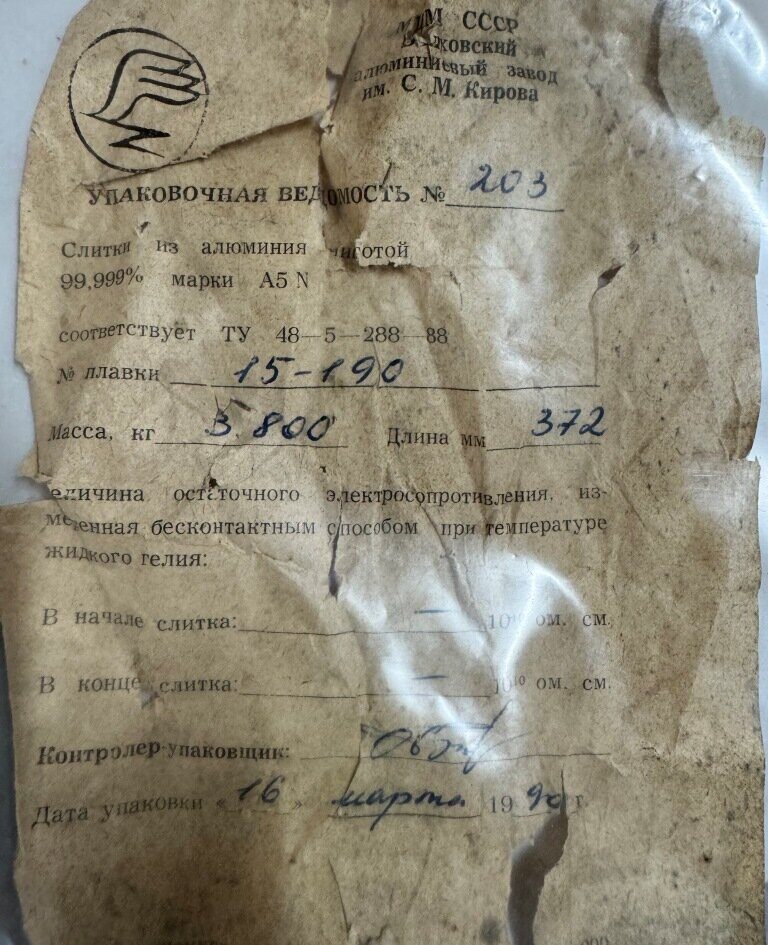 СССР
алюминиевый завод
им. С. М. Кирова
УПАКОВОЧНАЯ ВЕДОМОСТЬ № 203
Слитки из алюминия чистотой
99,999% марки А5 N
соответствует ТУ 48—5—288—88
№ плавки 15-190
Масса, кг 3.800 Длина мм 372
еличина остаточного электросопротивления, из-
меренная бесконтактным способом при температуре
жидкого гелия:
В начале слитка: — 10¹⁰ ом. см.
В конце слитка: — 10¹⁰ ом. см.
Контролер-упаковщик:
Дата упаковки «16» марта 1990 г.